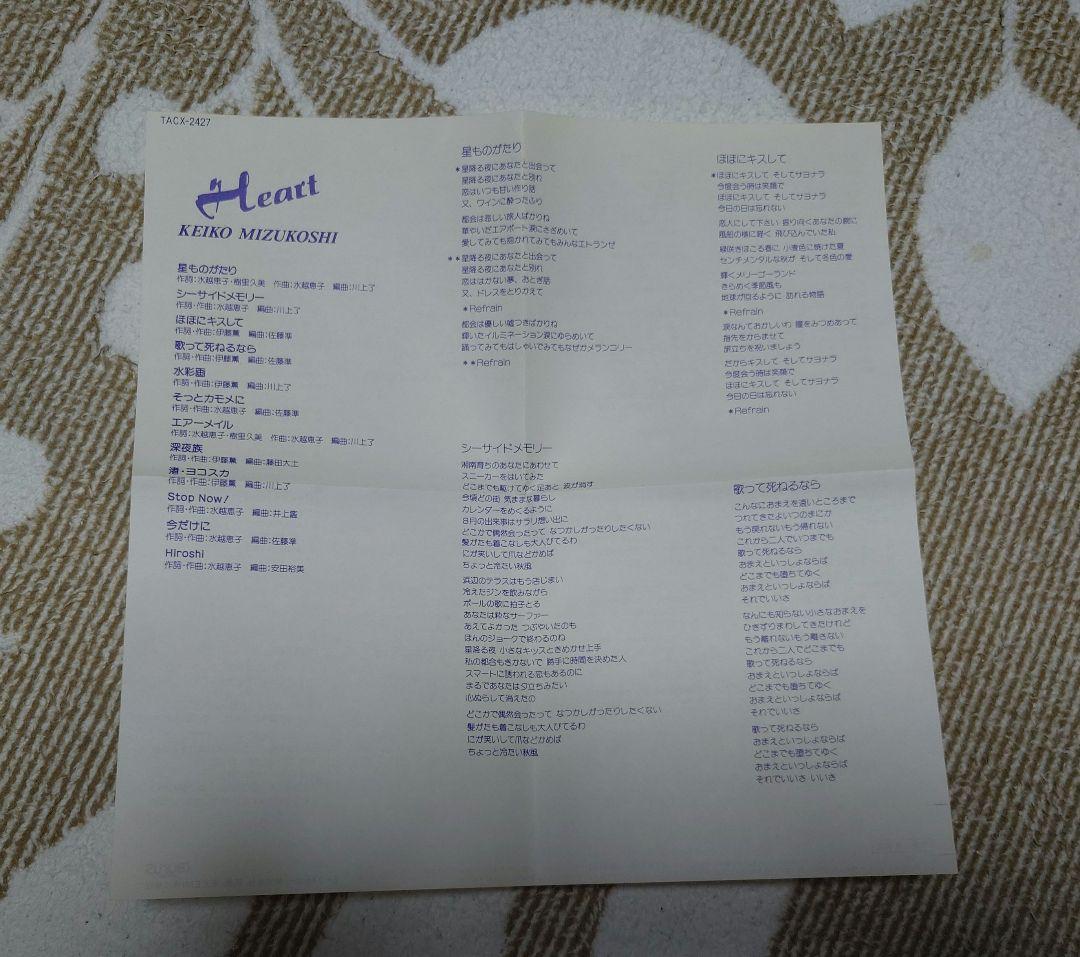 TACX-2427
Heart
KEIKO MIZUKOSHI
星ものがたり
作詞:水越恵子・樹里久美 作曲:水越恵子 編曲:川上了
シーサイドメモリー
作詞・作曲:水越恵子 編曲:川上了
ほほにキスして
作詞・作曲:伊藤薫 編曲:佐藤準
歌って死ねるなら
作詞・作曲:伊藤薫 編曲:佐藤準
水彩画
作詞・作曲:伊藤薫 編曲:川上了
そっとカモメに
作詞・作曲:水越恵子 編曲:佐藤準
エアーメイル
作詞:水越恵子・樹里久美 作曲:水越恵子 編曲:川上了
深夜族
作詞・作曲:伊藤薫 編曲:藤田大土
渚・ヨコスカ
作詞・作曲:伊藤薫 編曲:川上了
Stop Now!
作詞・作曲:水越恵子 編曲:井上鑑
今だけに
作詞・作曲:水越恵子 編曲:佐藤準
Hiroshi
作詞・作曲:水越恵子 編曲:安田裕美
星ものがたり
*星降る夜にあなたと出会って
星降る夜にあなたと別れ
恋はいつも甘い作り話
又、ワインに酔ったふり
都会は悲しい旅人ばかりね
華やいだエアポート涙にさざめいて
愛してみても抱かれてみてもみんなエトランゼ
**星降る夜にあなたと出会って
星降る夜にあなたと別れ
恋ははかない夢、おとぎ話
又、ドレスをとりかえて
*Refrain
都会は優しい嘘つきばかりね
輝いたイルミネーション涙にゆらめいて
踊ってみてもはしゃいでみてもなぜかメランコリー
**Refrain
シーサイドメモリー
湘南育ちのあなたにあわせて
スニーカーをはいてみた
どこまでも駆けてゆく足あと 波が消す
今頃どの街 気ままな暮らし
カレンダーをめくるように
8月の出来事はサラリ想い出に
どこかで偶然会ったって なつかしがったりしたくない
髪がたも着こなしも大人びてるわ
にが笑いして爪などかめば
ちょっと冷たい秋風
浜辺のテラスはもう店じまい
冷えたジンを飲みながら
ポールの歌に拍子とる
あなたは粋なサーファー
あえてよかった つぶやいたのも
ほんのジョークで終わるのね
星降る夜 小さなキッスときめかせ上手
私の都合もきかないで 勝手に時間を決めた人
スマートに誘われる恋もあるのに
まるであなたは夕立ちみたい
心ぬらして消えたの
どこかで偶然会ったって なつかしがったりしたくない
髪がたも着こなしも大人びてるわ
にが笑いして爪などかめば
ちょっと冷たい秋風
ほほにキスして
*ほほにキスして そしてサヨナラ
今度会う時は笑顔で
ほほにキスして そしてサヨナラ
今日の日は忘れない
恋人にして下さい 振り向くあなたの腕に
風船の様に軽く 飛び込んでいた私
緑咲きほころ春に 小麦色に焼けた夏
センチメンタルな秋が そして冬色の愛
輝くメリーゴーランド
きらめく季節風も
地球が回るように 訪れる物語
*Refrain
涙なんておかしいわ 瞳をみつめあって
指先をからませて
旅立ちを祝いましょう
だからキスして そしてサヨナラ
今度会う時は笑顔で
ほほにキスして そしてサヨナラ
今日の日は忘れない
*Refrain
歌って死ねるなら
こんなにおまえを遠いところまで
つれてきたよいつのまにか
もう戻れないもう帰れない
これから二人でいつまでも
歌って死ねるなら
おまえといっしょならば
どこまでも堕ちてゆく
おまえといっしょならば
それでいいさ
なんにも知らない小さなおまえを
ひきずりまわしてきたけれど
もう離れないもう離さない
これから二人でどこまでも
歌って死ねるなら
おまえといっしょならば
どこまでも堕ちてゆく
おまえといっしょならば
それでいいさ
歌って死ねるなら
おまえといっしょならば
どこまでも堕ちてゆく
おまえといっしょならば
それでいいさ いいさ